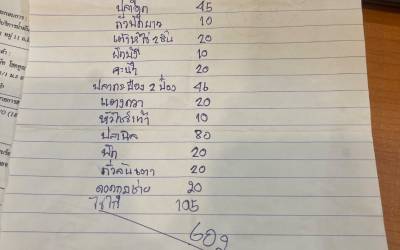 ปลาดุก 45
ถั่วฝักยาว 10
เต้าหู้ไข่ 2 ชิ้น 20
ผักชี 10
คะน้า 20
ปลากระป๋อง 2 ป๋อง 46
แตงกวา 20
หัวไชเท้า 10
ปลานิล 80
ฟัก 20
ถั่วลันเตา 20
ดอกกุยช่าย 20
ไข่ไก่ 105
609